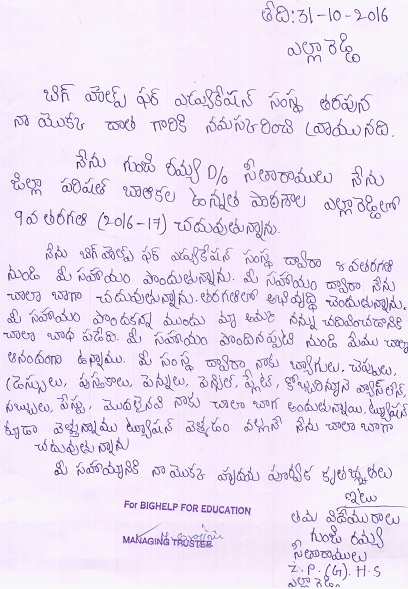 తేది:31-10-2016
ఎల్లారెడ్డి
బిగ్ హెల్ప్ ఫర్ ఎడ్యుకేషన్ సంస్థ తరపున
నా యొక్క దాత గారికి నమస్కరించి వ్రాయునది.
నేను గుండి రమ్య D/o సీతారాములు నేను
జిల్లా పరిషత్ బాలికల ఉన్నత పాఠశాల ఎల్లారెడ్డిలో
9వ తరగతి (2016-17) చదువుతున్నాను.
నేను బిగ్ హెల్ప్ ఫర్ ఎడ్యుకేషన్ సంస్థ ద్వారా 8వతరగతి
నుండి మీ సహాయం పొందుతున్నాను. మీ సహాయం ద్వారా నేను
చాలా బాగా చదువుతున్నాను. తరగతిలో అభివృద్ధి చెందుతున్నాను.
మీ సహాయం పొందకన్న ముందు మా అమ్మ నన్ను చదివించడానికి
చాలా బాధ పడేది. మీ సహాయం పొందినప్పటి నుండి మేము చాలా
ఆనందంగా ఉన్నాము. మీ సంస్థ ద్వారా నాకు బ్యాగులు, చెప్పులు,
డ్రెస్సులు, పుస్తకాలు, పెన్నులు, పెన్సిల్, ప్లేట్, కొబ్బరినూనె, వ్యాస్‌లెన్,
సబ్బులు, పేస్టు, మొదలైనవి నాకు చాలా బాగ అందుతున్నాయి. ట్యూషన్
కూడా వెళ్తున్నాము ట్యూషన్ వెళ్ళడం వల్లనే నేను చాలా బాగా
చదువుతున్నాను
మీ సహాయ్యానికి నా యొక్క హృదయ పూర్వక కృతజ్ఞతలు
ఇట్లు
తమ విధేయురాలు
గుండి రమ్య
సీతారాములు
Z.P.(G).H.S
ఎల్లారెడ్డి
For BIGHELP FOR EDUCATION
MANAGING TRUSTEE